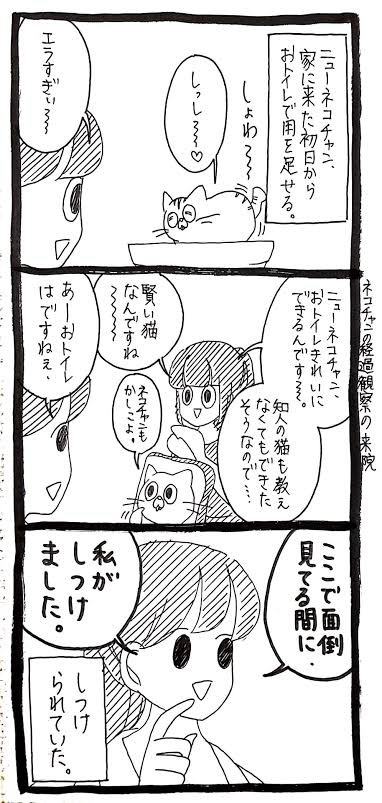 ニューネコチャン、
家に来た初日から
おトイレで用を足せる。
しょわ〜〜
しっし〜〜♡
エラすぎぃ〜〜
ネコチャンの経過観察の来院
ニューネコチャン、
おトイレきれいに
できるんです〜〜。
知人の猫も教え
なくてもできた
そうなので…、
賢い猫
なんですね
〜〜〜
ネコチャンも
かしこよ。
あーおトイレ
はですねぇ、
ここで面倒
見てる間に、
私が
しつけ
ました。
しつけ
られていた。